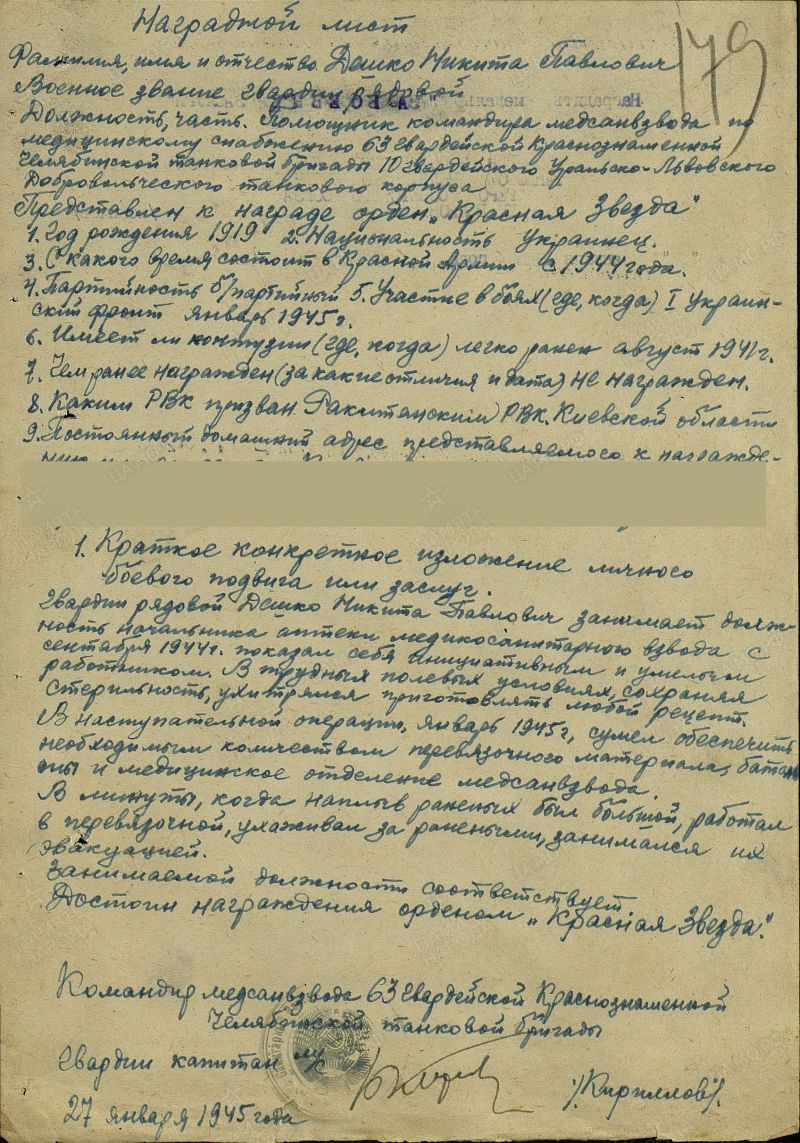 Наградной лист
179
Фамилия, имя и отчество Дешко Никита Павлович
Военное звание гвардии рядовой
Должность, часть. Помощник командира медсанвзвода по
медицинскому снабжению 63 гвардейской Краснознаменной
Челябинской танковой бригады 10 гвардейского Уральско-Львовского
Добровольческого танкового корпуса
Представлен к награде орден „Красная Звезда"
1. Год рождения 1919 2. Национальность Украинец.
3. С какого время состоит в Красной Армии с 1944 года.
4. Партийность б/партийный 5. Участие в боях (где, когда) I Украин-
ский фронт январь 1945 г.
6. Имеет ли контузии (где, когда) легко ранен август 1941 г.
7. Чем ранее награжден (за какие отличия и дата) не награжден.
8. Каким РВК призван Ракитянским РВК. Киевской области
9. Постоянный домашний адрес представляемого к награжде-
нию
1. Краткое конкретное изложение личного
боевого подвига или заслуг.
Гвардии рядовой Дешко Никита Павлович занимает долж-
ность начальника аптеки медикосанитарного взвода с
сентября 1944 г. показал себя инициативным и умелым
работником. В трудных полевых условиях, сохраняя
стерильность, ухитрялся приготовлять любой рецепт.
В наступательной операции, январь 1945 г, сумел обеспечить
необходимым количеством перевязочного материала, баталь
оны и медицинское отделение медсанвзвода.
В минуты, когда наплыв раненых был большой, работал
в перевязочной, ухаживал за ранеными, занимался их
эвакуацией.
Занимаемой должности соответствует
Достоин награждения орденом „Красная Звезда."
Командир медсанвзвода 63 гвардейской Краснознаменной
Челябинской танковой бригады
гвардии капитан м/с
/Кириллов/.
27 января 1945 года